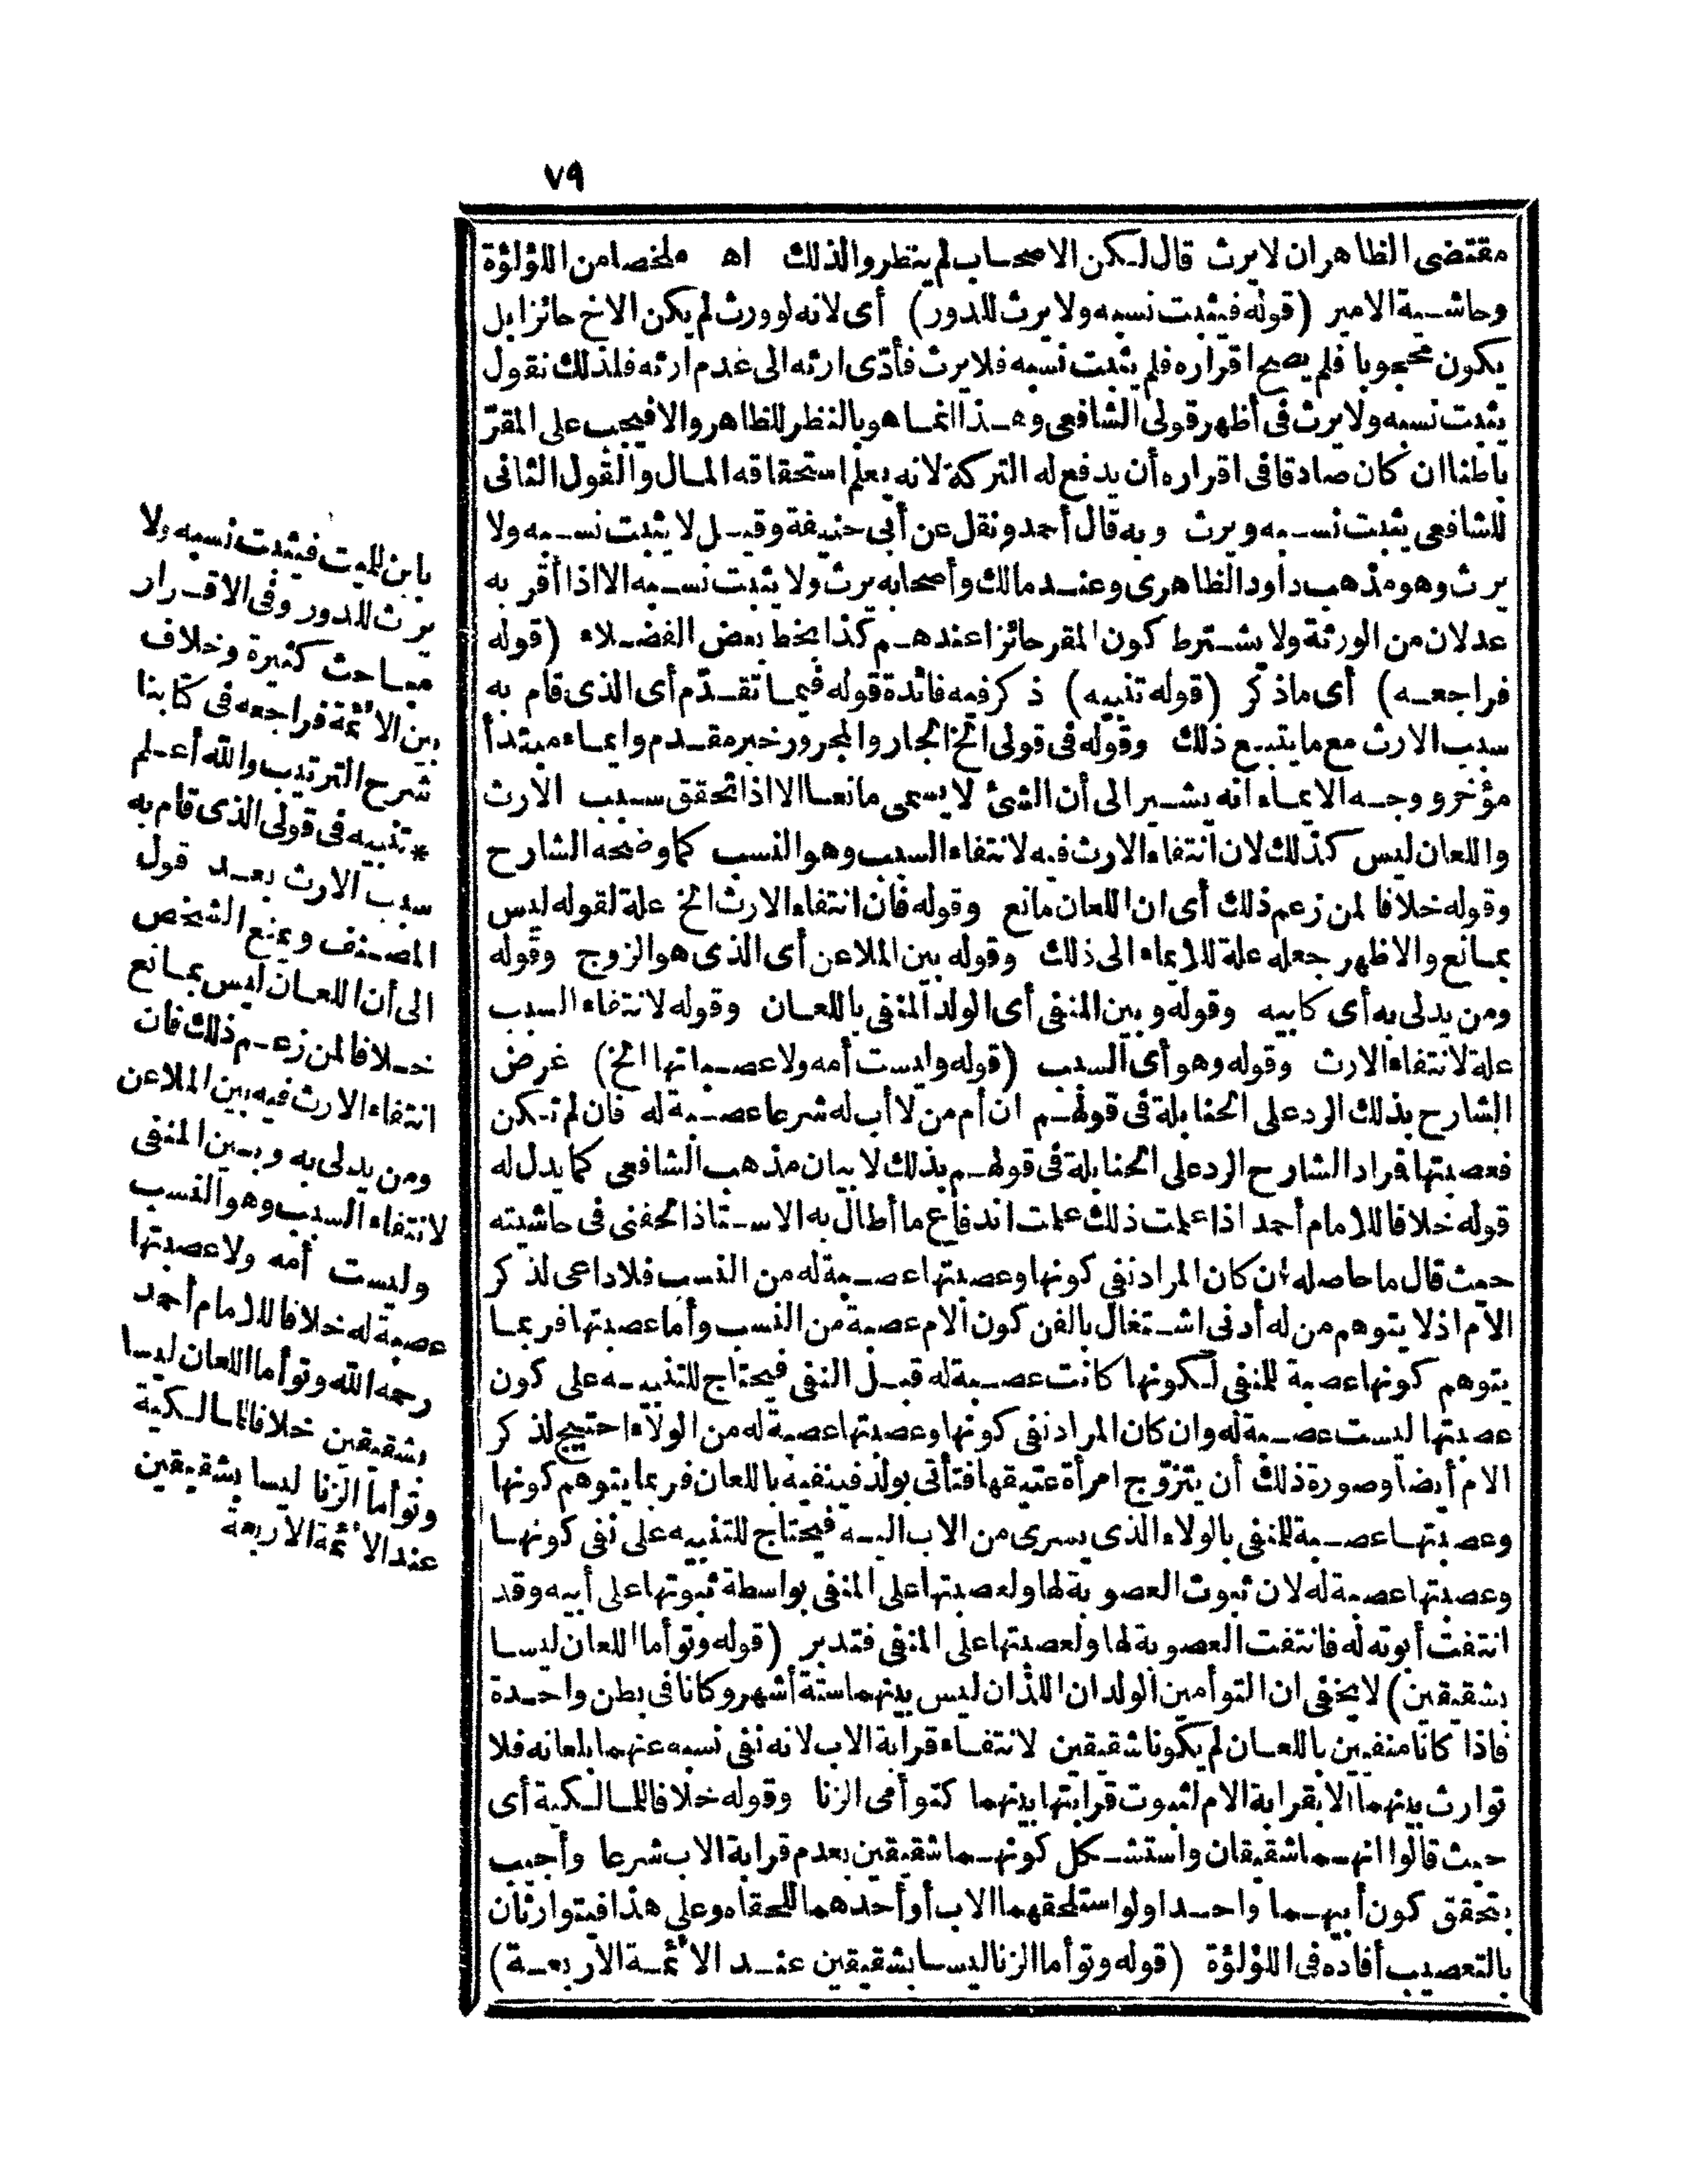 ٧٩
مقتضى الظاهر ان لا يرث قال لكن الاصحاب لم ينظروا لذلك اه ملخصا من اللؤلؤة
وحاشية الامير (قوله فيثبت نسبه ولا يرث للدور) أى لانه لو ورث لم يكن الاخ حائزا بل
يكون محجوبا فلم يصح اقراره فلم يثبت نسبه فلا يرث فأدّى ارثه الى عدم ارثه فلذلك نقول
يثبت نسبه ولا يرث فى أظهر قولى الشافعى وهذا انما هو بالنظر للظاهر والا فيجب على المقرّ
باطنا ان كان صادقا فى اقراره أن يدفع له التركة لانه يعلم استحقاقه المال والقول الثانى
للشافعى يثبت نسبه ويرث وبه قال أحمد ونقل عن أبى حنيفة وقيل لا يثبت نسبه ولا
يرث وهو مذهب داود الظاهرى وعند مالك وأصحابه يرث ولا يثبت نسبه الا اذا أقر به
عدلان من الورثة ولا يشترط كون المقر حائزا عندهم كذا بخط بعض الفضلاء (قوله
فراجعه) أى ما ذكر (قوله تنبيه) ذكر فيه فائدة قوله فيما تقدّم أى الذى قام به
سبب الارث مع ما يتبع ذلك وقوله فى قولى الخ الجار والمجرور خبر مقدم وايماء مبتدأ
مؤخر ووجه الايماء أنه يشير الى أن الشئ لا يسمى مانعا الا اذا تحقق سبب الارث
واللعان ليس كذلك لان انتفاء الارث فيه لانتفاء السبب وهو النسب كما وضحه الشارح
وقوله خلافا لمن زعم ذلك أى ان اللعان مانع وقوله فان انتفاء الارث الخ علة لقوله ليس
بمانع والاظهر جعله علة للايماء الى ذلك وقوله بين الملاعن أى الذى هو الزوج وقوله
ومن يدلى به أى كابيه وقوله وبين المنفى أى الولد المنفى باللعان وقوله لانتفاء السبب
علة لانتفاء الارث وقوله وهو أى السبب (قوله وليست أمه ولا عصباتها الخ) غرض
الشارح بذلك الرد على الحنابلة فى قولهم ان أم من لا أب له شرعا عصبة له فان لم تكن
فعصبتها فمراد الشارح الرد على الحنابلة فى قولهم بذلك لا بيان مذهب الشافعى كما يدل له
قوله خلافا للامام أحمد اذا علمت ذلك علمت اندفاع ما أطال به الاستاذ الحفنى فى حاشيته
حيث قال ما حاصله ان كان المراد نفى كونها وعصبتها عصبة له من النسب فلا داعى لذكر
الام اذ لا يتوهم من له أدنى اشتغال بالفن كون الام عصبة من النسب وأما عصبتها فربما
يتوهم كونها عصبة للمنفى لكونها كانت عصبة له قبل النفى فيحتاج للتنبيه على كون
عصبتها ليست عصبة له وان كان المراد نفى كونها وعصبتها عصبة له من الولاء احتيج لذكر
الام أيضا وصورة ذلك أن يتزوّج امرأة عتيقها فتأتى بولد فينفيه باللعان فربما يتوهم كونها
وعصبتها عصبة للمنفى بالولاء الذى يسرى من الاب اليه فيحتاج للتنبيه على نفى كونها
وعصبتها عصبة له لان ثبوت العصوبة لها ولعصبتها على المنفى بواسطة ثبوتها على أبيه وقد
انتفت أبوته له فانتفت العصوبة لها ولعصبتها على المنفى فتدبر (قوله وتوأما اللعان ليسا
بشقيقين) لا يخفى ان التوأمين الولدان اللذان ليس بينهما ستة أشهر وكانا فى بطن واحدة
فاذا كانا منفيين باللعان لم يكونا شقيقين لانتفاء قرابة الاب لانه نفى نسبه عنهما بلعانه فلا
توارث بينهما الا بقرابة الام لثبوت قرابتها بينهما كتوأمى الزنا وقوله خلافا للمالكية أى
حيث قالوا انهما شقيقان واستشكل كونهما شقيقين بعدم قرابة الاب شرعا وأجيب
بتحقق كون أبيهما واحدا ولو استلحقهما الاب أو أحدهما للحقاه وعلى هذا فيتوارثان
بالتعصيب أفاده فى اللؤلؤة (قوله وتوأما الزنا ليسا بشقيقين عند الأئمة الاربعة)
بابن للميت فيثبت نسبه ولا
يرث للدور وفى الاقرار
مباحث كثيرة وخلاف
بين الأئمة فراجعه فى كتابنا
شرح الترتيب والله أعلم
* تنبيه فى قولى الذى قام به
سبب الارث بعد قول
المصنف ويمنع الشخص
الى أن اللعان ليس بمانع
خلافا لمن زعم ذلك فان
انتفاء الارث فيه بين الملاعن
ومن يدلى به وبين المنفى
لانتفاء السبب وهو النسب
وليست أمه ولا عصبتها
عصبة له خلافا للامام أحمد
رحمه الله وتوأما اللعان ليسا
بشقيقين خلافا للمالكية
وتوأما الزنا ليسا بشقيقين
عند الأئمة الاربعة